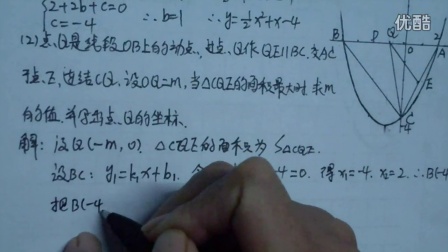 2+2b+c=0
c=-4
∴b=1 ∴y=½x²+x-4
(2)点Q是线段OB上的动点,过点Q作QE∥BC,交AC
于点E,连结CQ,设OQ=m,当△CQE的面积最大时,求m
的值,并写出点Q的坐标.
解:设Q(-m,0),△CQE的面积为S△CQE.
设BC:y₁=k₁x+b₁. -4=0.得x₁=-4,x₂=2,∴B(-4
把B(-4
B D Q O 2 A
E
C
-4